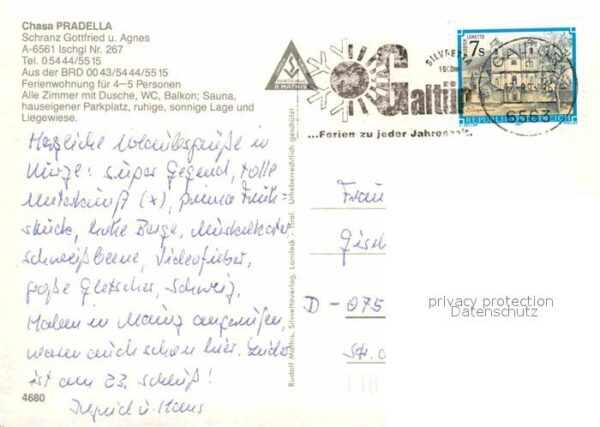 Chasa PRADELLA
Schranz Gottfried u. Agnes
A-6561 Ischgl Nr. 267
Tel. 05444/5515
Aus der BRD 0043/5444/5515
Ferienwohnung für 4–5 Personen
Alle Zimmer mit Dusche, WC, Balkon; Sauna,
hauseigener Parkplatz, ruhige, sonnige Lage und
Liegewiese.
Herzliche Urlaubsgrüße in
Kürze: super Gegend, tolle
Unterkunft (x), prima Früh-
stück, hohe Berge, Muskelkater,
schweißbeene, Videofieber,
große Gletscher, Schweiz,
Haben in Mainz angerufen,
waren auch schon hier. Leider
ist am 23. schluß!
u. Hans
4680
Rudolf Mathis, Silvrettaverlag, Landeck - Tirol. Urheberrechtlich geschützt
R. MATHIS
SILVRETTA
Galtür
...Ferien zu jeder Jahreszeit.
LORETTO
7s
REPUBLIK ÖSTERREICH
6563
Frau
D - 075
Str.
privacy protection
Datenschutz